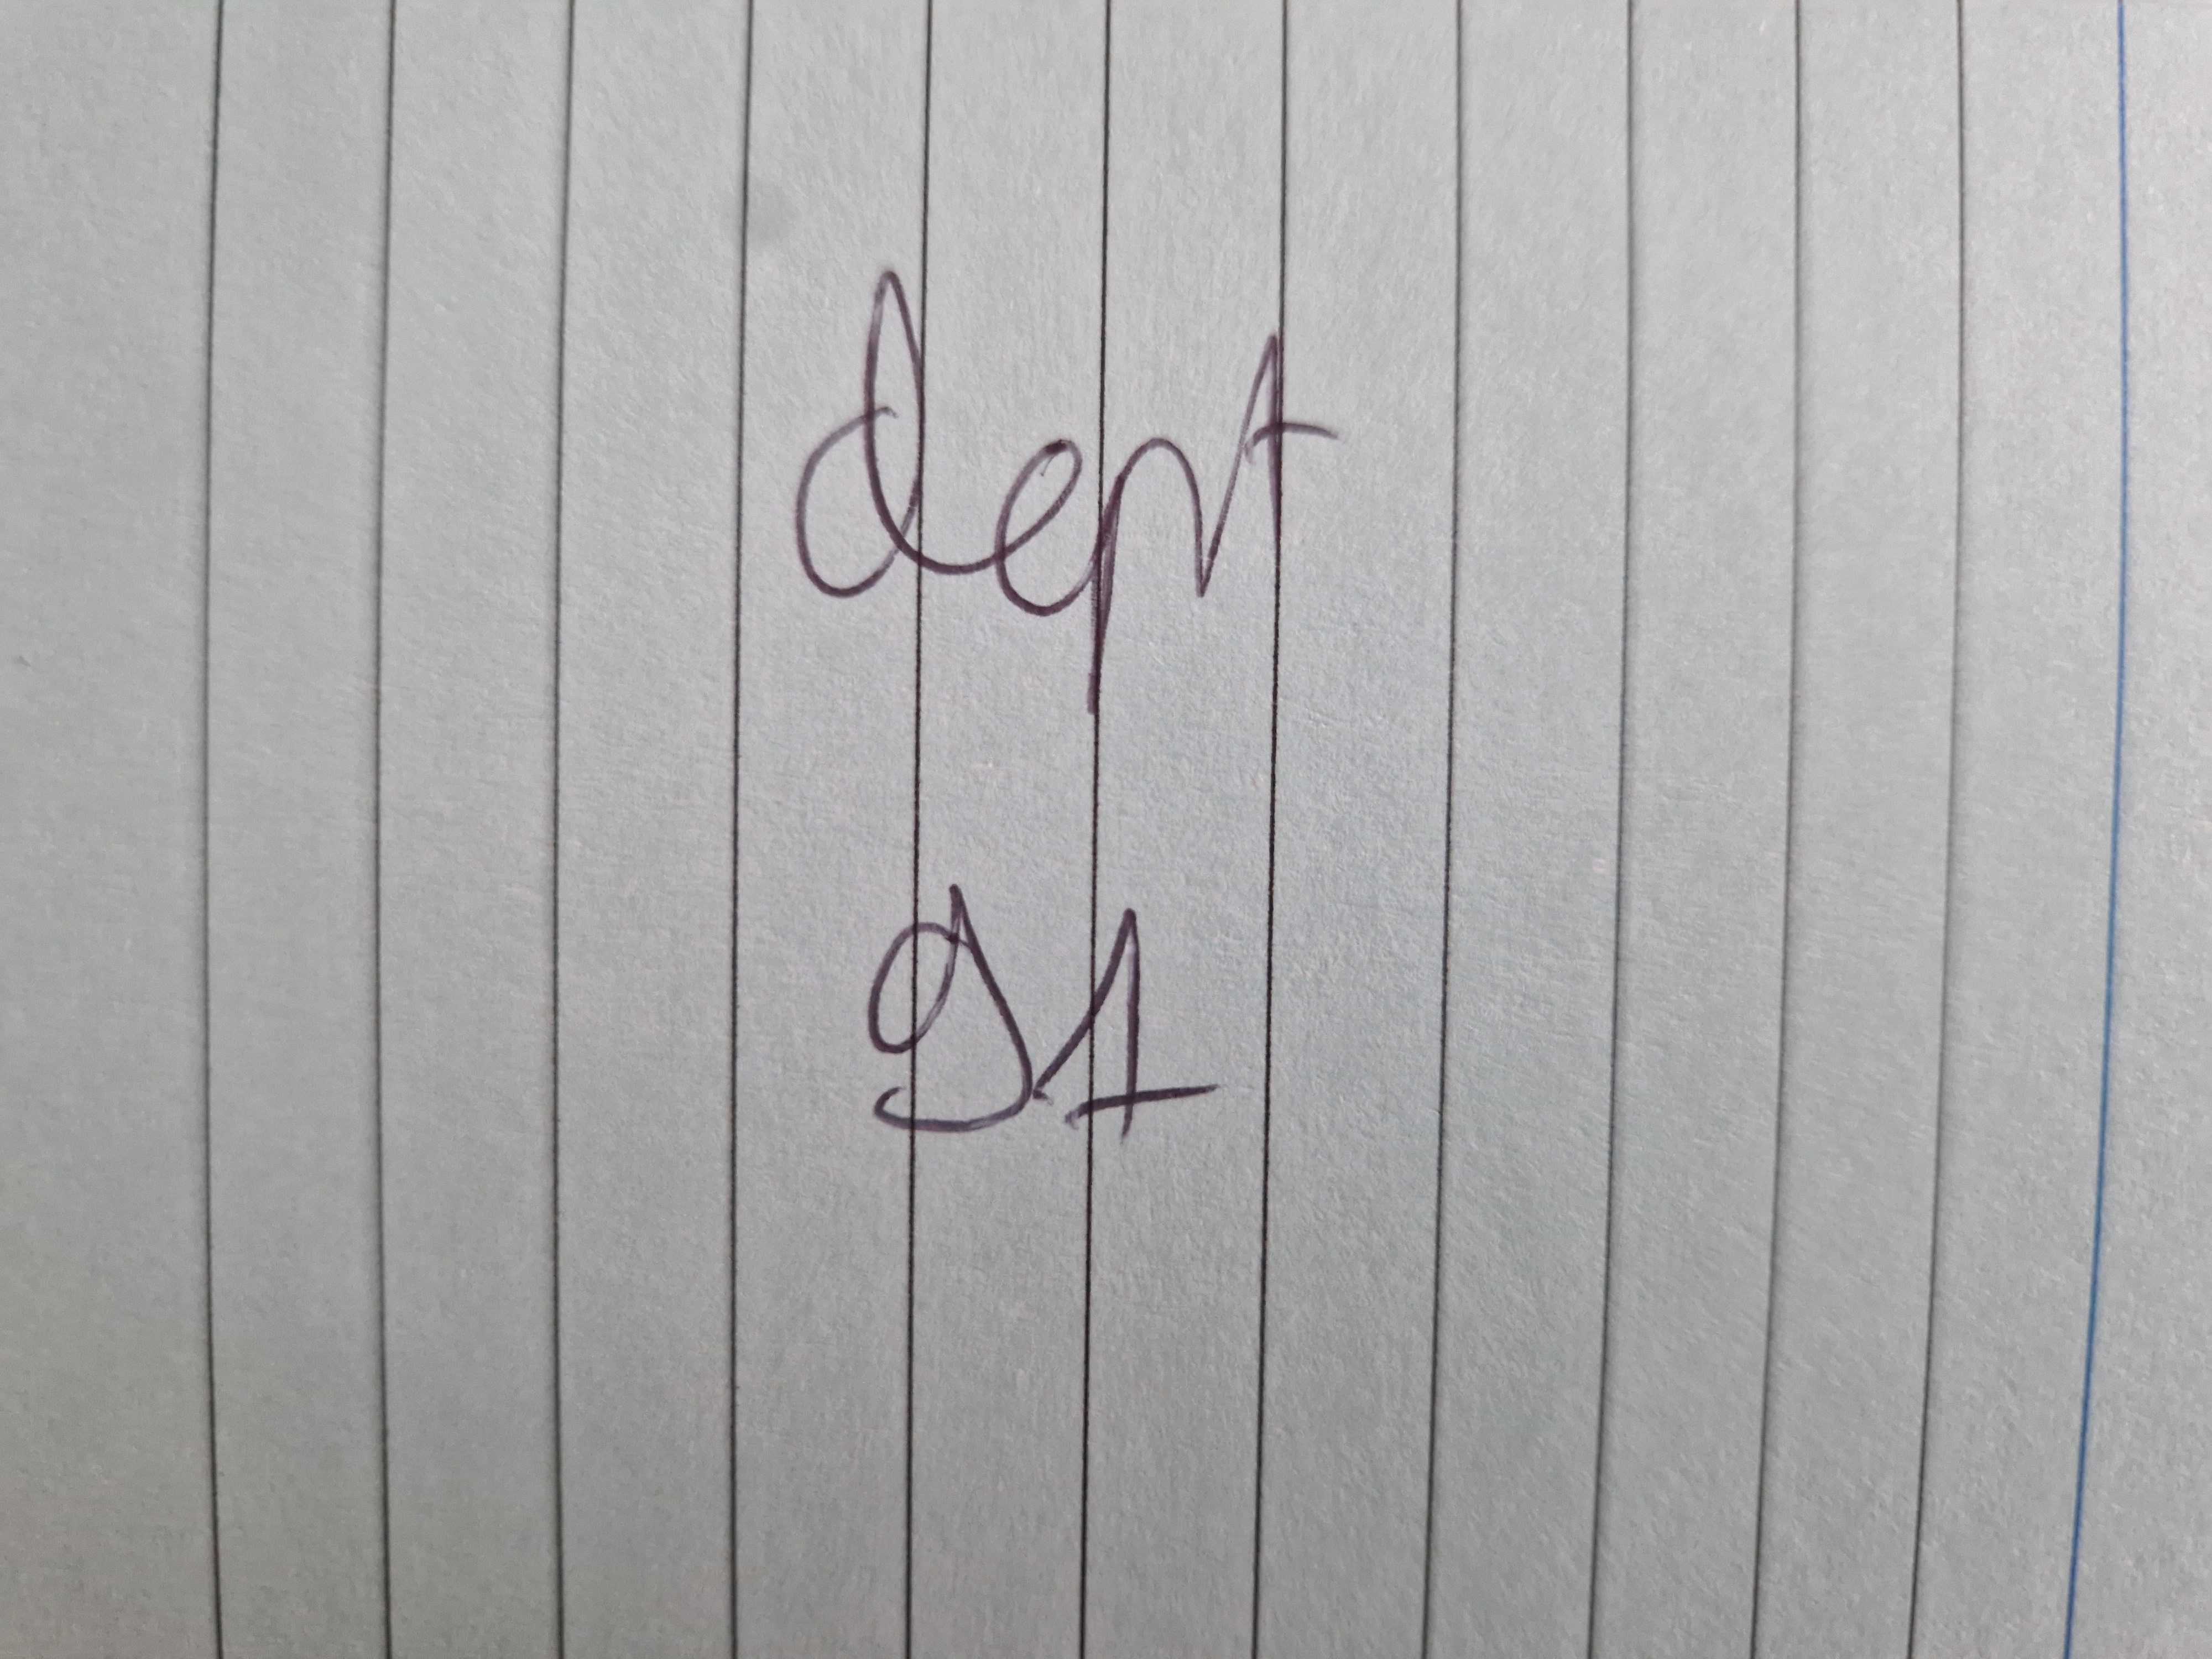 dept
91